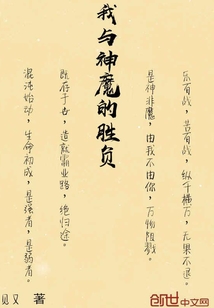 我与神魔的胜负
乐有战，苦有战，纵千横万，无果不退。
是神非魔，由我不由你，万物阻戮。
既存于世，造就霸业路，绝归途。
混沌始动，生命初成，是强者，是弱者。
见又 著
创世中文网